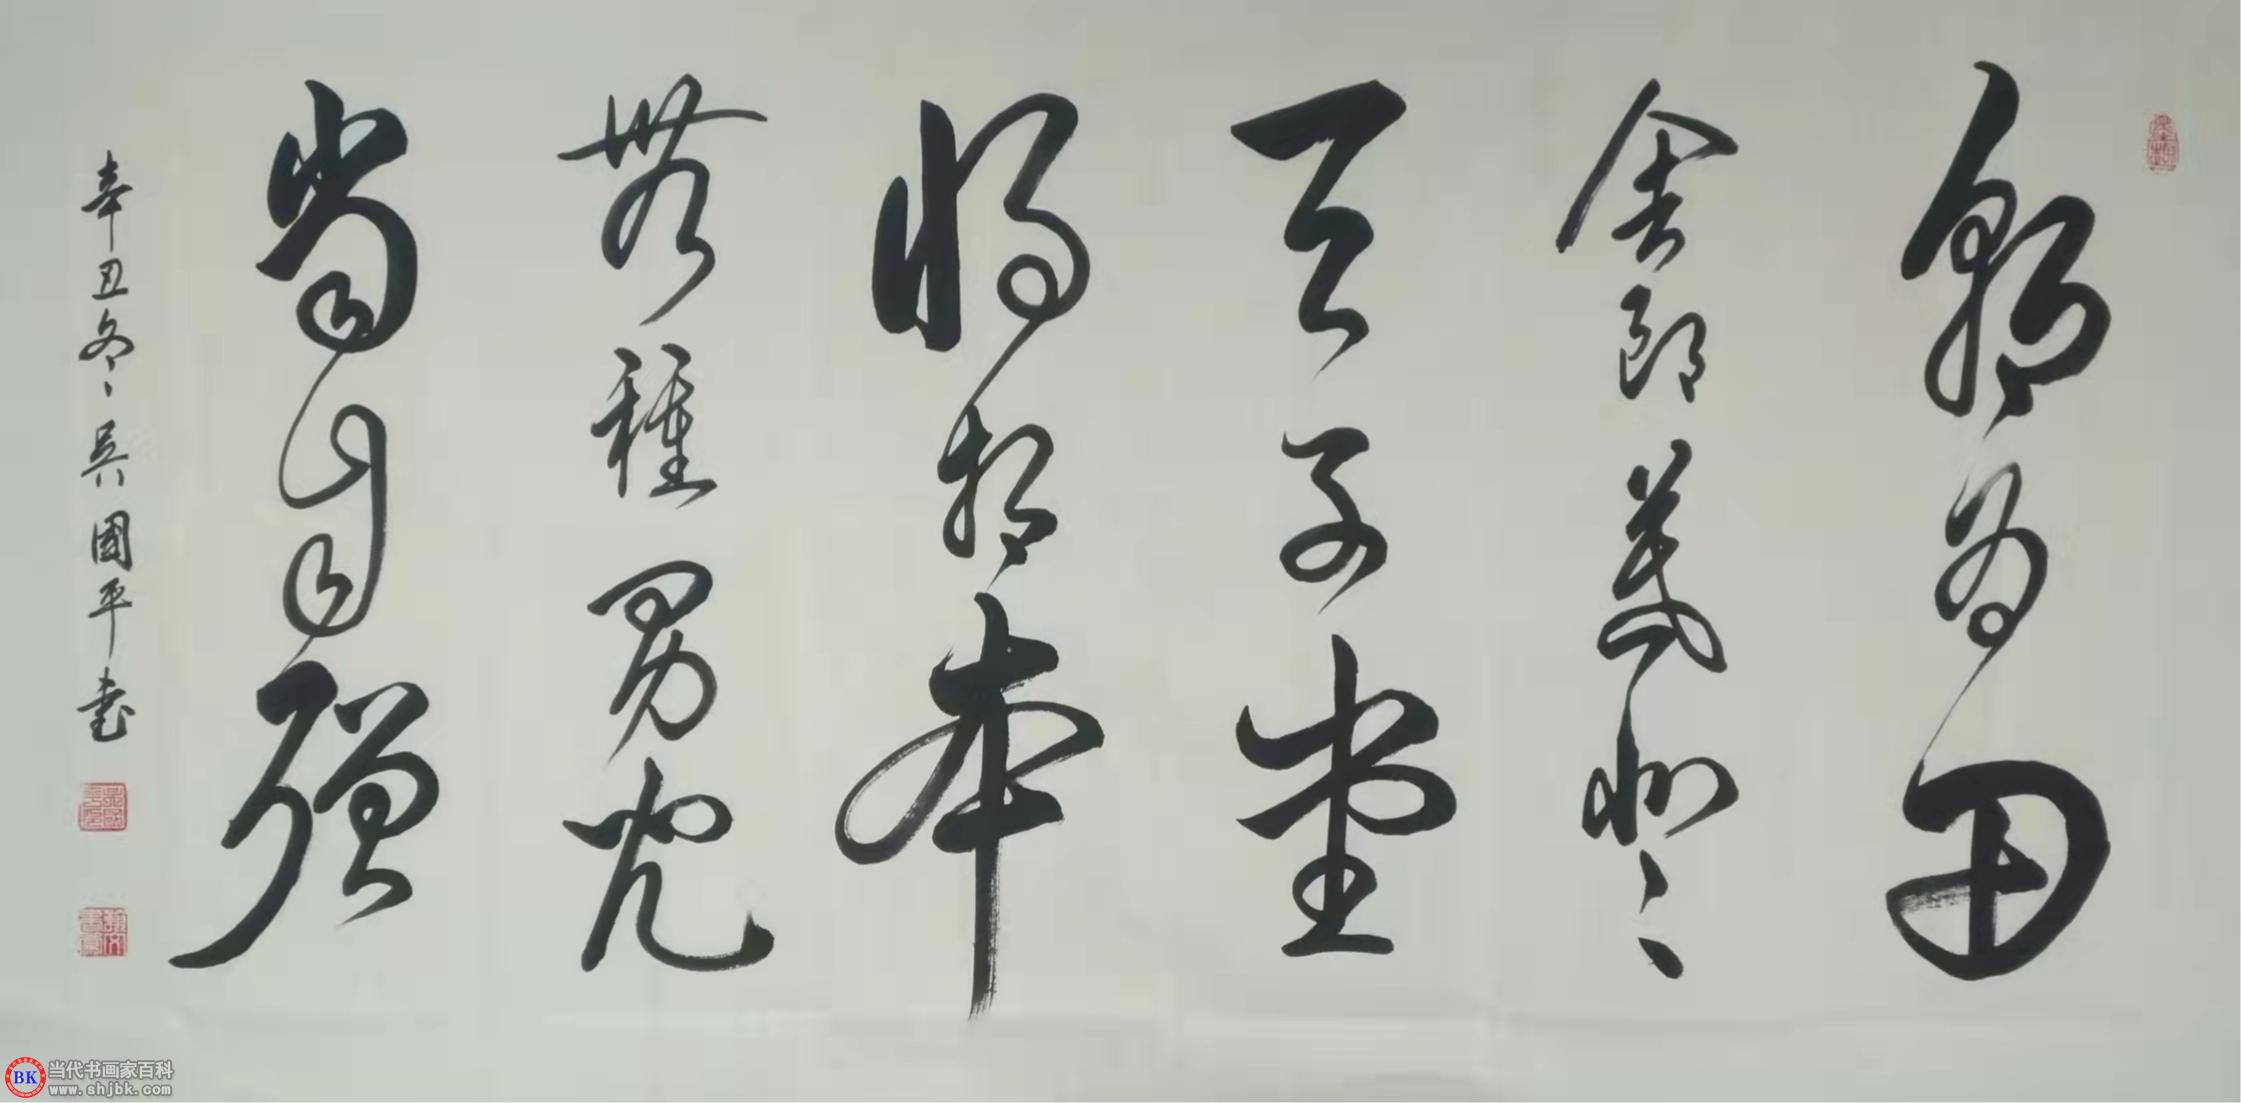 朝为田
舍郎暮登
天子堂
将相本
無種男児
当自强
辛丑冬吴國平書
BK
当代书画家百科
www.shjbk.com